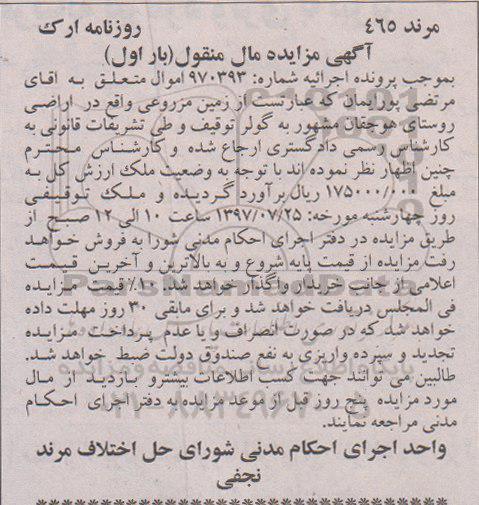 مرند ٤٦٥ روزنامه ارک
آگهی مزایده مال منقول(بار اول)
بموجب پرونده اجرائیه شماره: ۹۷۰۳۹۳ اموال متعلق به آقای
مرتضی پورایمان که عبارتست از زمین مزروعی واقع در اراضی
روستای هوجقان مشهور به گولر توقیف و طی تشریفات قانونی به
کارشناس رسمی دادگستری ارجاع شده و کارشناس محترم
چنین اظهار نظر نموده اند با توجه به وضعیت ملک ارزش کل به
مبلغ ۱۷۵۰۰۰/۰۰۰ ریال برآورد گردیده و ملک توقیفی
روز چهارشنبه مورخه: ۱۳۹۷/۰۷/۲۵ ساعت ۱۰ الی ۱۲ صبح از
طریق مزایده در دفتر اجرای احکام مدنی شورا به فروش خواهد
رفت مزایده از قیمت پایه شروع و به بالاترین و آخرین قیمت
اعلامی از جانب خریدار واگذار خواهد شد. ۱۰٪ قیمت مزایده
فی المجلس دریافت خواهد شد و برای مابقی ۳۰ روز مهلت داده
خواهد شد که در صورت انصراف و یا عدم پرداخت مزایده
تجدید و سپرده واریزی به نفع صندوق دولت ضبط خواهد شد.
طالبین می توانند جهت کسب اطلاعات بیشترو بازدید از مال
مورد مزایده پنج روز قبل از موعد مزایده به دفتر اجرای احکام
مدنی مراجعه نمایند.
واحد اجرای احکام مدنی شورای حل اختلاف مرند
نجفی
ParsNamadData
پایگاه اطلاع رسانی مناقصه و مزایده
۰۲۱-۸۸۳۴۹۶۷۰